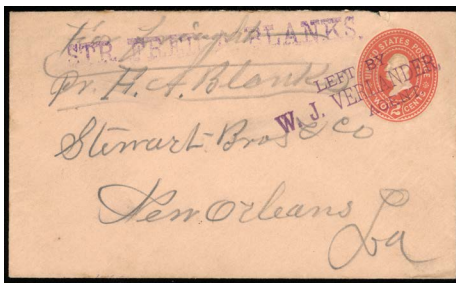 STR. FRED A. BLANKS.
Pr. H. A. Blanks
LEFT BY
W. J. VERLANDER,
AGENT
UNITED STATES POSTAGE
TWO CENTS
Stewart Bros & Co
New Orleans
La